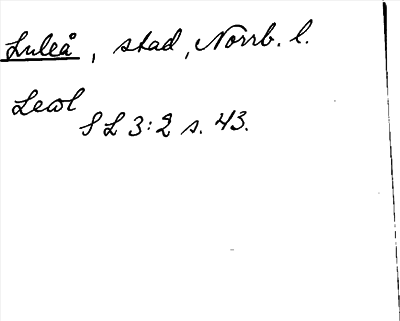 Luleå, stad, Norrb. l.
Lewl
SL 3:2 s. 43.